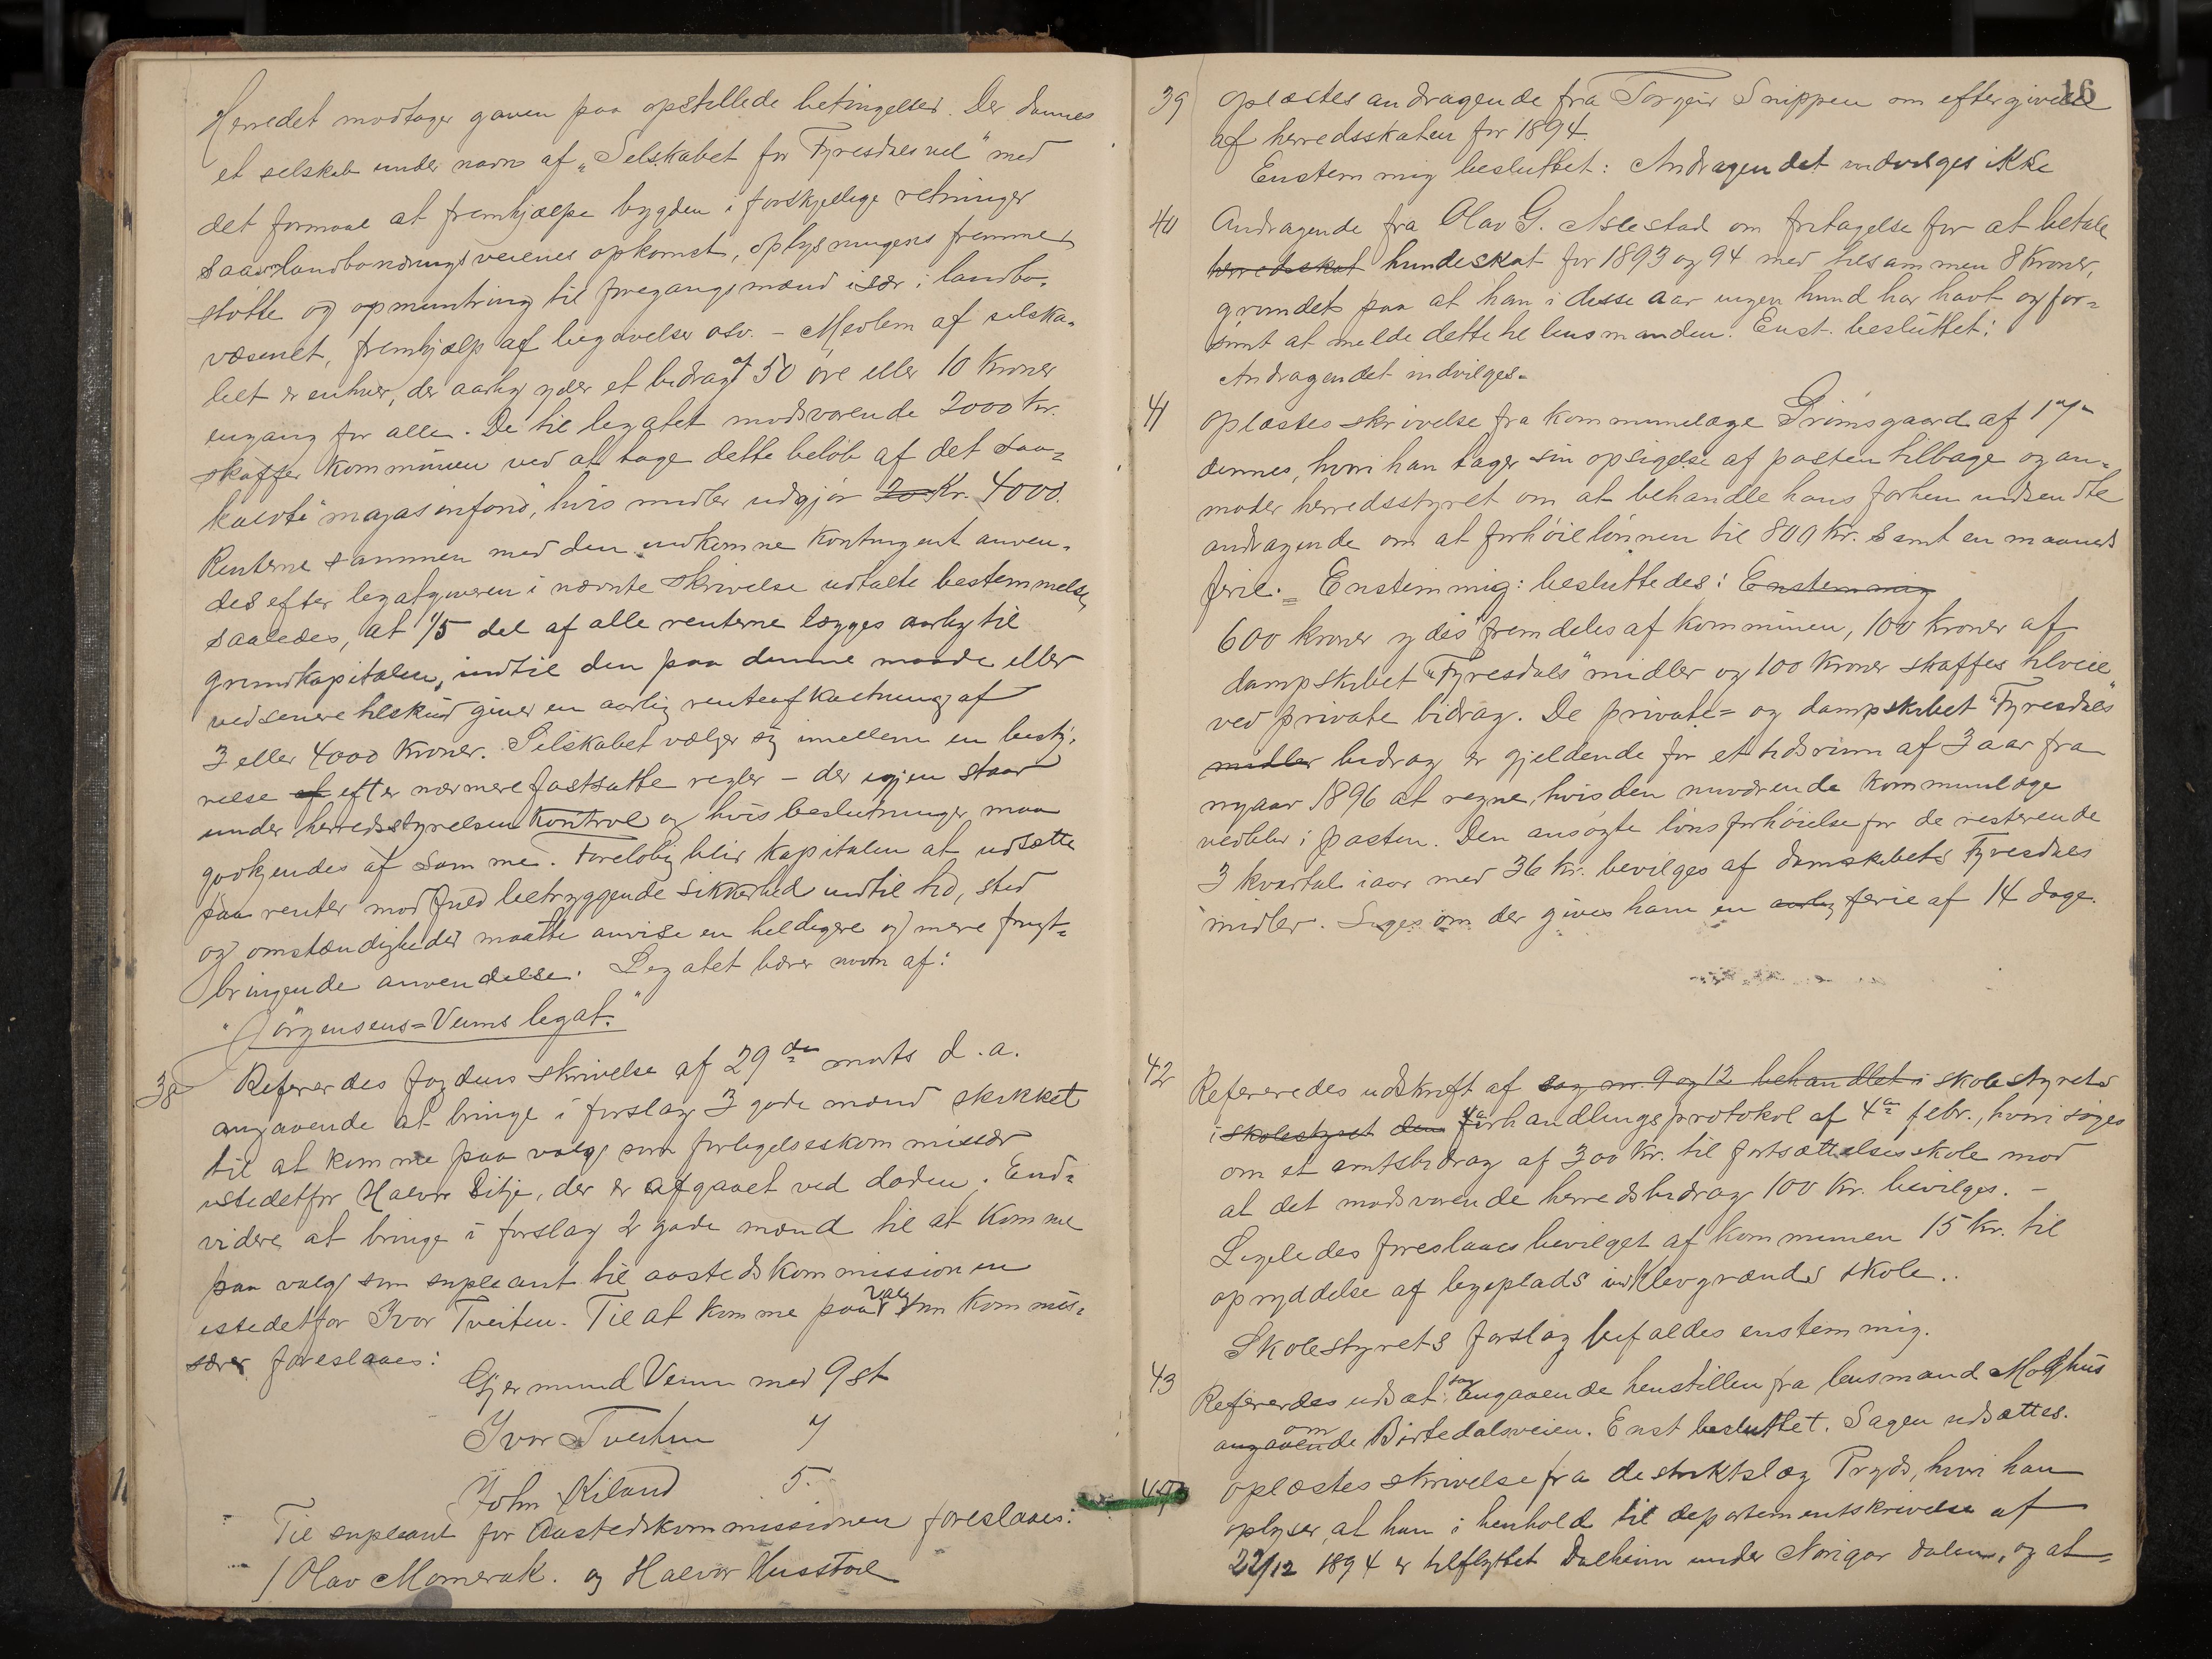 Herredet modtager gaven paa opstillede betingelser. Der dannes
et selskab under navn af „Selskabet for Fyresdals vel" med
det formaal at fremhjælpe bygden i forskjellige retninger
saasom landbonæringsveienes opkomst, oplysningens fremme,
støtte og opmuntring til foregangsmænd især i landbo-
væsenet, fremhjælp af begavelser osv. – Medlem af selska-
bet er enhver, der aarlig yder et bidrag af 50 øre eller 10 kroner
engang for alle. De til legatet modsvarende 2000 kr.
skaffer kommunen ved at tage dette beløb af det saa-
kaldte "magasinfond", hvis midler udgjør Kr. 4000.
Renterne sammen med den indkomne kontingent anven-
des efter legatgiveren i nævnte skrivelse udtalte bestemmelse,
saaledes, at 1/5 del af alle renterne lægges aarlig til
grundkapitalen, indtil den paa denne maade eller
ved senere tilskud giver en aarlig renteafkastning af
3 eller 4000 kroner. Selskabet vælger sig imellem en besty-
relse af efter nærmere fastsatte regler – der igjen staar
under herredsstyrelsen kontrol og hvis beslutninger maa
godkjendes af samme. Foreløbig blir kapitalen at udsætte
paa renter mod fuld betryggende sikkerhed indtil tid, sted
og omstændigheder maatte anvise en heldigere og mere frugt-
bringende anvendelse. Legatet bærer navn af:
"Jørgensens=Veums legat."
38 Refererdes fogdens skrivelse af 29de marts d.a.
angaaende at bringe i forslag 3 gode mænd skikket
til at komme paa valg som forligelseskommissær
istedetfor Halvor Sitje, der er afgaaet ved døden. End-
videre at bringe i forslag 2 gode mænd til at komme
paa valg som supleant til aastedskommissionen
istedetfor Ivor Tveiten. Til at komme paa valg som kommis-
særer foreslaaes:
Gjermund Veum med 9 st
Ivor Tveiten 7
John Kiland 5.
Til supleant for Aastedskommissionen foreslaaes:
Olav Momrak. og Halvor Husstøil
16
39 Oplæstes andragende fra Torgeir Snippen om eftergivelse
af herredsskaten for 1894.
Enstemmig besluttet: Andragendet indvilges ikke
40 Andragende fra Olav G. Aslestad om fritagelse for at betale
herredsskat hundeskat for 1893 og 94 med tilsammen 8 kroner,
grundet paa at han i disse aar ingen hund har havt og for-
sømt at melde dette til lensmanden. Enst. besluttet:
Andragendet indvilges.
41 Oplæstes skrivelse fra kommunelæge Grimsgaard af 1ste
dennes, hvori han tager sin opsigelse af posten tilbage og an-
moder herredsstyret om at behandle hans forhen indsendte
andragende om at forhøie lønnen til 800 kr. samt en maaneds
ferie. Enstemmig: besluttedes: Enstemmig
600 kroner ydes fremdeles af kommunen, 100 kroner af
dampskibet "Fyresdals" midler og 100 kroner skaffes tilveie
ved private bidrag. De private= og dampskibet "Fyresdals"
midler bidrag er gjeldende for et tidsrum af 3 aar fra
nyaar 1896 at regne, hvis den nuværende kommunlæge
vedblir i posten. Den ansøgte lønsforhøielse for de resterende
3 kvartal iaar med 36 kr. bevilges af damskibets Fyresdals
midler. Ligesom der gives ham en aarlig ferie af 14 dage.
42 Refereredes udskrift af sag nr. 9 og 12 behandlet i skolestyrets
i skolestyret den forhandlingsprotokol af 4de febr., hvori søges
om et amtsbidrag af 300 kr. til fortsættelsesskole mod
at det modsvarende herredsbidrag 100 kr. bevilges. –
Ligeledes foreslaaes bevilget af kommunen 15 kr. til
opryddelse af legeplads ved Klevgrænds skole..
Skolestyrets forslag bifaldes enstemmig.
43 Refererdes udsat sag angaaende henstillen fra lensmand Moghus
angaaende om Birtedalsveien. Enst besluttet. Sagen udsættes.
Oplæstes skrivelse fra distriktslæg Pryds, hvori han
oplyser, at han i henhold til departementskrivelse af
22/12 1894 er tilflyttet Dalheim under Norigar dalen, og at